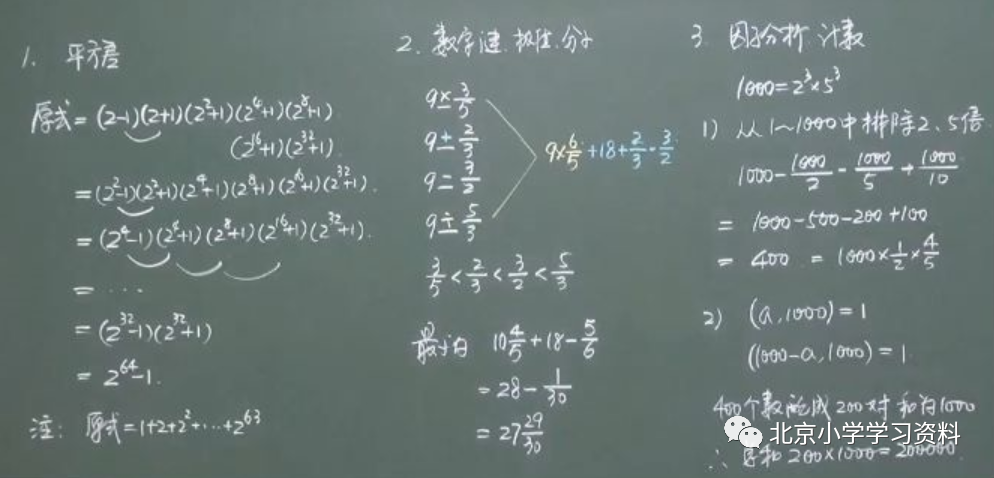 1. 平方差
原式=(2-1)(2+1)(2²+1)(2⁴+1)(2⁸+1)
(2¹⁶+1)(2³²+1)
=(2²-1)(2²+1)(2⁴+1)(2⁸+1)(2¹⁶+1)(2³²+1).
=(2⁴-1)(2⁴+1)(2⁸+1)(2¹⁶+1)(2³²+1).
= ...
=(2³²-1)(2³²+1)
= 2⁶⁴-1.
注: 原式=1+2+2²+...+2⁶³
2. 数字谜.极值.分
9×3/5
9+2/3
9-3/2
9÷5/3
9×6/5+18+2/3-3/2
3/5<2/3<3/2<5/3
最小为 10 4/5+18-5/6
=28-1/30
=27 29/30
3. 因子分析.计数
1000=2³×5³
1) 从1~1000中排除2、5倍
1000-1000/2-1000/5+1000/10
= 1000-500-200+100
= 400 = 1000×1/2×4/5
2) (a,1000)=1
(1000-a,1000)=1
400个数配成200对 和为1000
∴ 总和 200×1000=200000.
北京小学学习资料